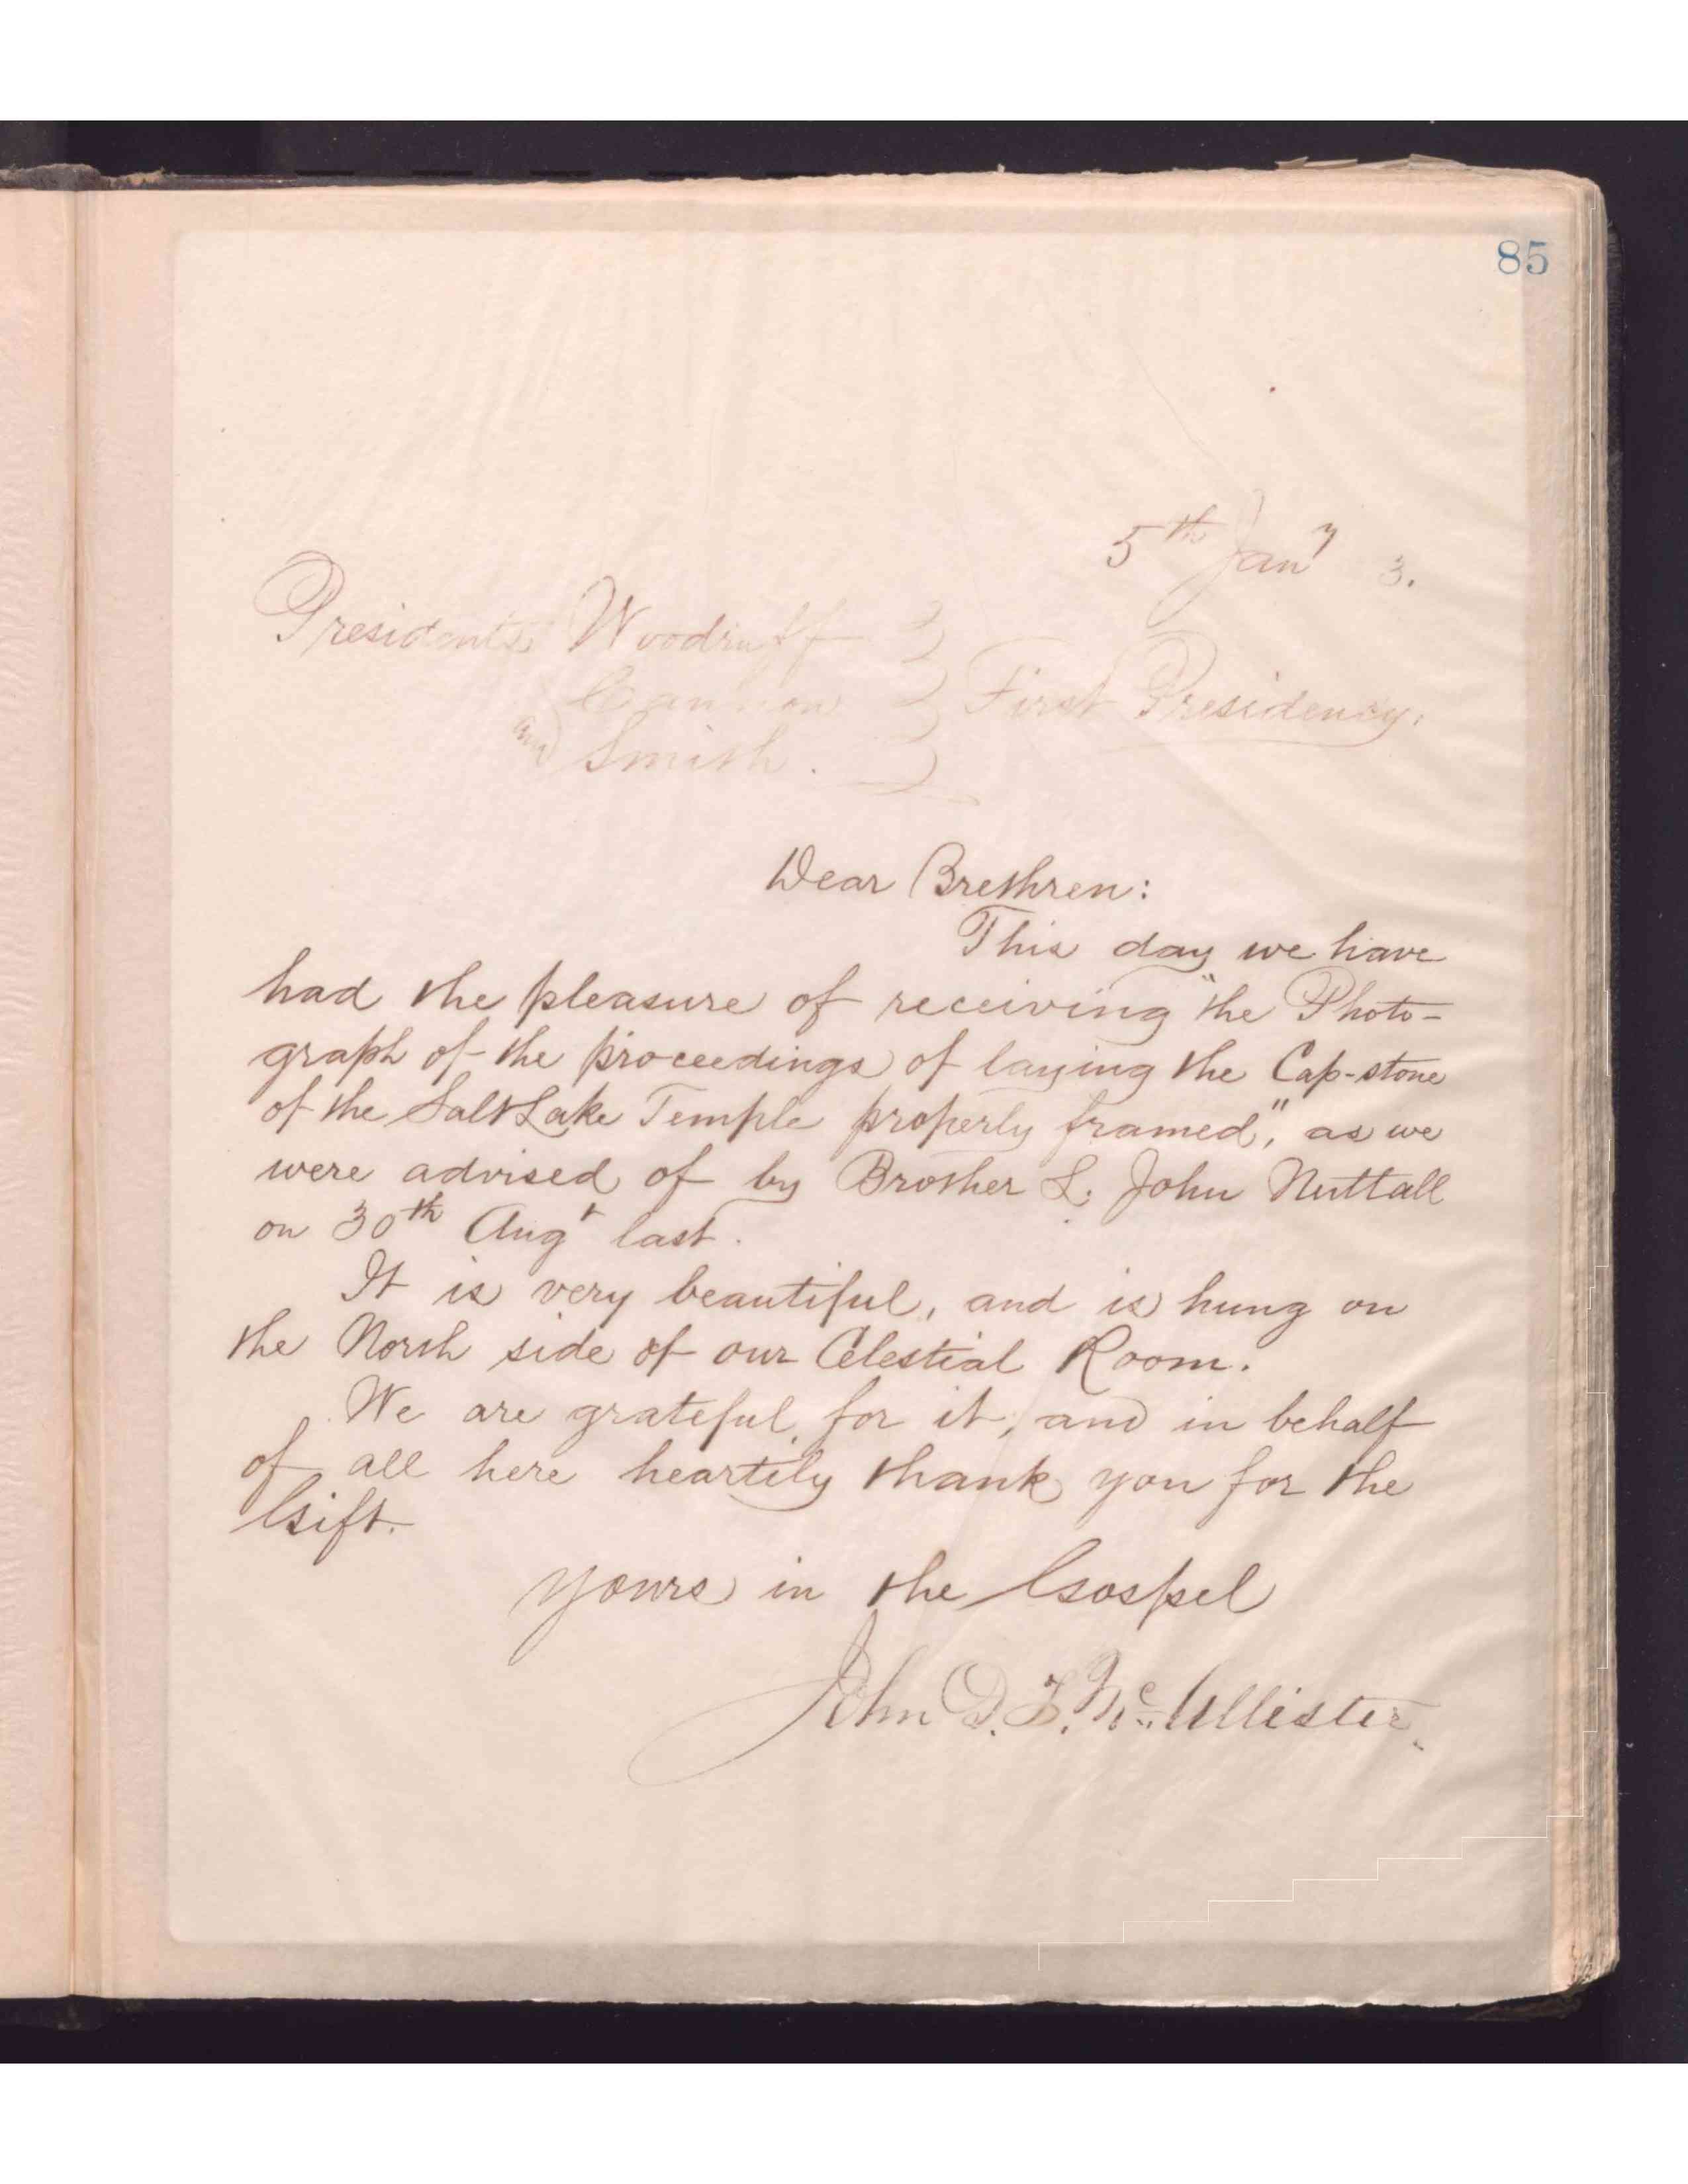 85
5th Jany 3.
Presidents Woodruff
Cannon } First Presidency.
and Smith.
Dear Brethren:
This day we have
had the pleasure of receiving "the Photo-
graph of the proceedings of laying the Cap-stone
of the Salt Lake Temple properly framed," as we
were advised of by Brother L. John Nuttall
on 30th Augt last.
It is very beautiful, and is hung on
the North side of our Celestial Room.
We are grateful for it, and in behalf
of all here heartily thank you for the
Gift.
Yours in the Gospel
John D. T. McAllister.